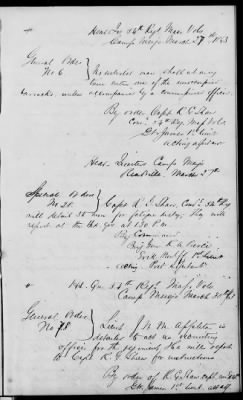 Head Qrs 54th Regt Mass Vols
Camp Meigs March 27th 1863
General Order
No 6. No enlisted man shall at any
time enter one of the unoccupied
barracks, unless accompanied by a commissioned officer.
By order Capt R. G. Shaw
Com'g 54th Reg Mass Vols
1st Lieut
acting adjutant
Head Quarters Camp Meigs
Readville March 27th
Special Order
No 28. Capt R. G. Shaw Com'g 54th Reg
will detail 25 men for fatigue duty; they will
report at the Qrs at 1.30 P.M.
By Command
Brig Gen R. A. Peirce
1st Lieut
acting Post Adjutant
Hd. Qrs 54th Regt Mass Vols
Camp Meigs March 30th 63
General Order
No 78. Lieut J. W. M. Appleton is
detailed to act as recruiting
officer for the regiment, & he will report
to Capt R. G. Shaw for instructions
By order of R. G. Shaw Capt
1st Lieut.